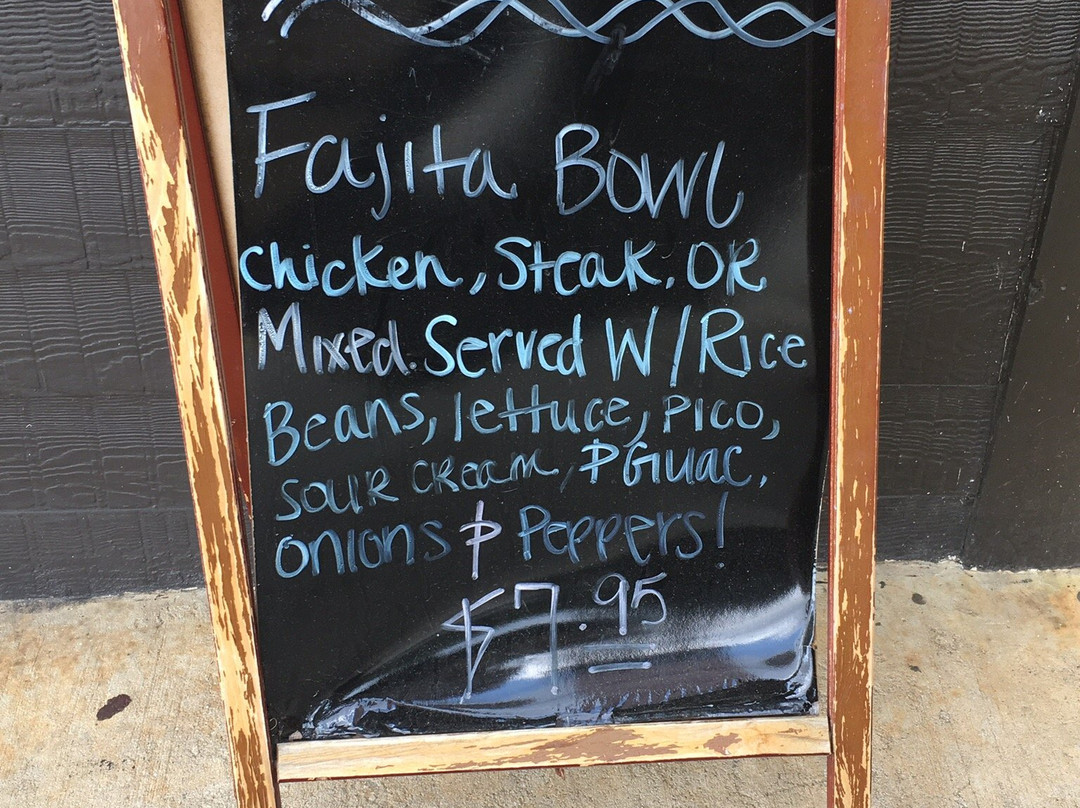 Fajita Bowl
Chicken, Steak, OR
Mixed. Served W/Rice
Beans, lettuce, Pico,
SOUR CREAM, & GUAC,
Onions & Peppers!
$7.95